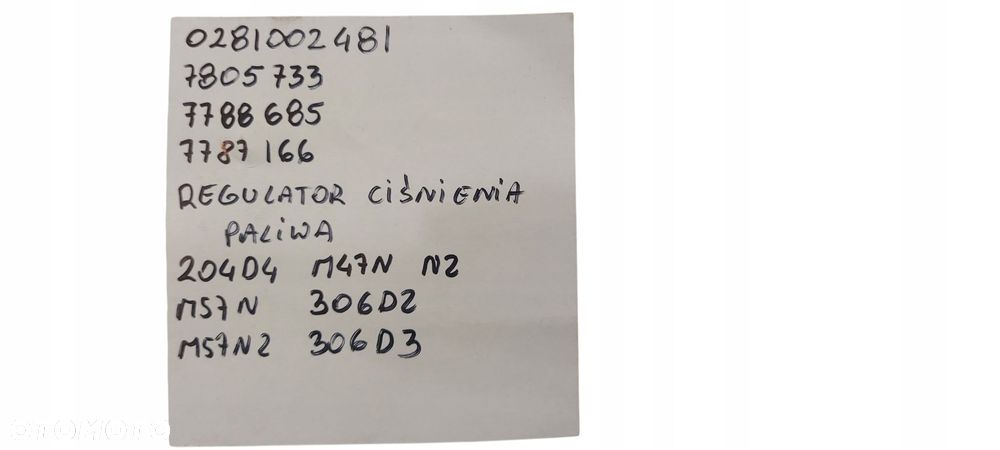 0281002481
7805733
7788685
7787166
REGULATOR CIŚNIENIA
PALIWA
204D4 M47N N2
M57N 306D2
M57N2 306D3
OTOMOTO